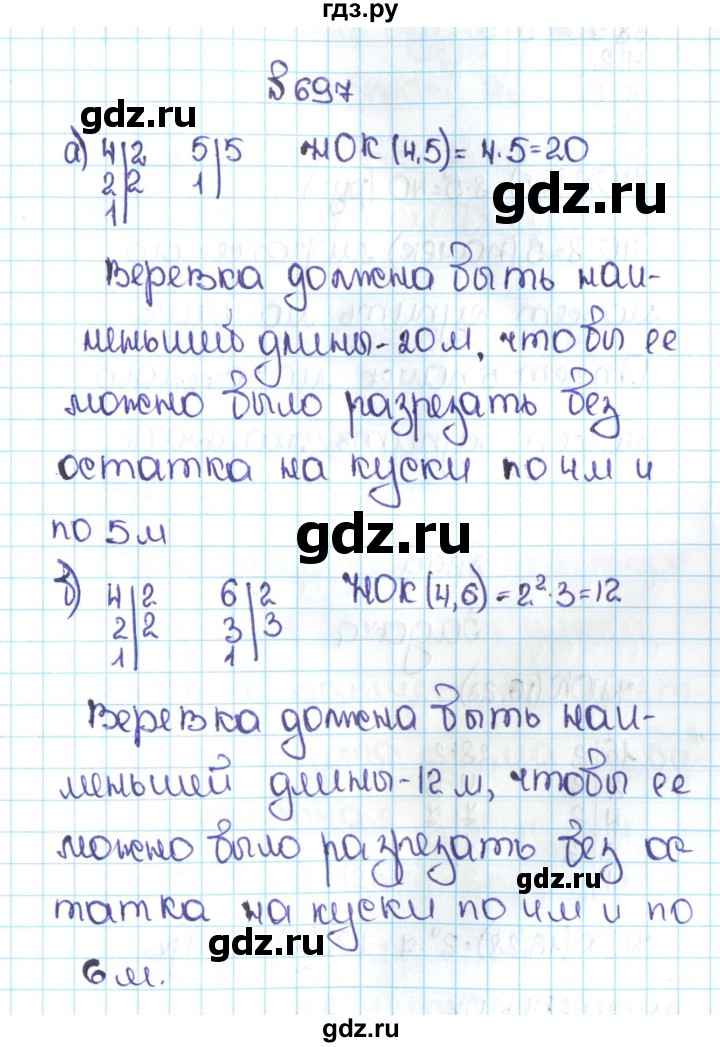 гдз.ру
№ 697
gdz.ru
а) 4|2 5|5 НОК (4,5) = 4·5=20
2|2 1|
1|
gdz.ru
Веревка должна быть наи-
меньшей длины-20м, чтобы ее
можно было разрезать без
остатка на куски по 4м и
gdz.ru
по 5м
б) 4|2 6|2 НОК (4,6) = 2²·3=12
2|2 3|3
1| 1|
Веревка должна быть наи-
меньшей длины-12м, чтобы ее
можно было разрезать без ос
gdz.ru
татка на куски по 4м и по
gdz.ru
6м.
gdz.ru